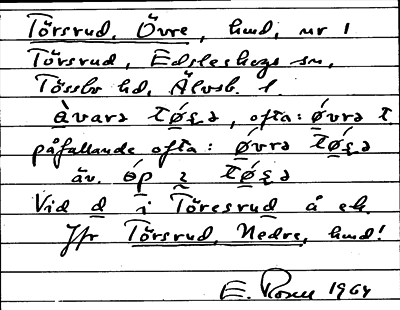 Törsrud, Övre, hmd, nr 1
Törsrud, Edsleskogs sn,
Tössbo hd, Älvsb. l.
àvarə tø̀sə, ofta: ǿvrə t.
påfallande ofta: ǿvrə tǿsə
äv. ǿp i tǿsə
Vid d i Töresrud å ek.
Jfr Törsrud, Nedre, hmd!
E. Rosell 1964